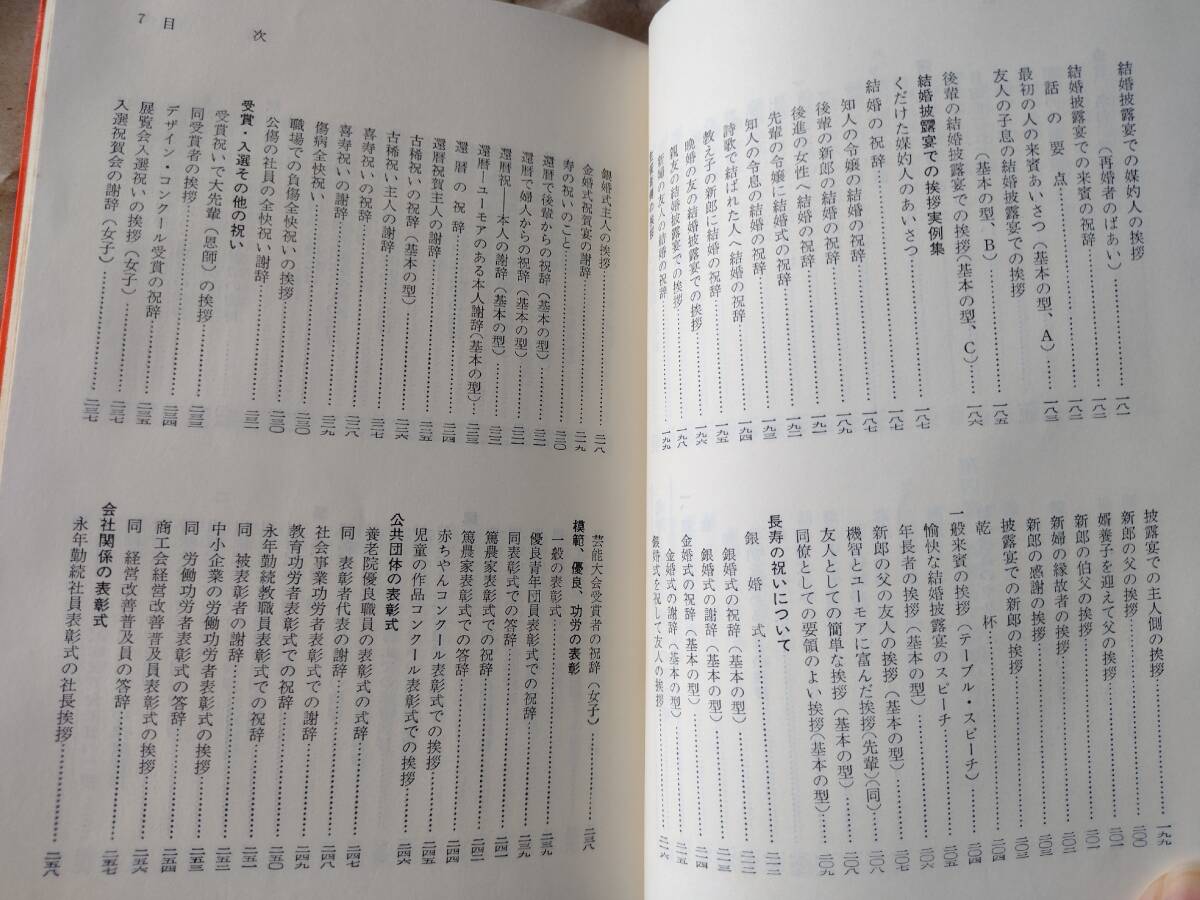 結婚披露宴での媒妁人の挨拶
(再婚者のばあい)……一八一
結婚披露宴での来賓の挨拶……一八二
話の要点……一八二
最初の人の来賓あいさつ(基本の型、A)……一八三
友人の子息の結婚披露宴での挨拶
(基本の型、B)……一八五
後輩の結婚披露宴での挨拶(基本の型、C)……一八六
結婚披露宴での挨拶実例集
くだけた媒妁人のあいさつ……一八七
結婚の祝辞……一八七
知人の令嬢の結婚の祝辞……一八九
後輩の新郎の結婚の祝辞……一九一
後進の女性へ結婚の祝辞……一九二
先輩の令嬢に結婚式の祝辞……一九三
知人の令息の結婚の祝辞……一九四
詩歌で結ばれた人へ結婚の祝辞……一九五
教え子の新郎に結婚の祝辞……一九六
晩婚の友の結婚披露宴での挨拶……一九六
親友の結婚披露宴での挨拶……一九八
新婦の友人の結婚の祝辞……一九九
披露宴での主人側の挨拶……一九九
新郎の父の挨拶……二〇〇
婿養子を迎えて父の挨拶……二〇一
新郎の伯父の挨拶……二〇一
新婦の縁故者の挨拶……二〇二
新郎の感謝の挨拶……二〇三
披露宴での新郎の挨拶……二〇三
乾杯……二〇四
一般来賓の挨拶(テーブル・スピーチ)……二〇四
愉快な結婚披露宴のスピーチ……二〇五
年長者の挨拶(基本の型)……二〇六
新郎の父の友人の挨拶(基本の型)……二〇七
機智とユーモアに富んだ挨拶(先輩)(同)……二〇八
友人としての簡単な挨拶(基本の型)……二〇八
同僚としての要領のよい挨拶(基本の型)……二〇九
長寿の祝いについて
銀婚式……二一二
銀婚式の祝辞(基本の型)……二一二
銀婚式の謝辞(基本の型)……二一三
金婚式の祝辞(基本の型)……二一四
金婚式の謝辞(基本の型)……二一五
銀婚式を祝して友人の挨拶……二一六
7 目次
銀婚式主人の挨拶……二一八
金婚式祝賀宴の謝辞……二一九
寿の祝いのこと……二二〇
還暦で後輩からの祝辞(基本の型)……二二一
還暦で婦人からの祝辞(基本の型)……二二一
還暦祝――本人の謝辞(基本の型)……二二二
還暦―ユーモアのある本人謝辞(基本の型)……二二三
還暦の祝辞……二二四
還暦祝賀主人の謝辞……二二五
古稀祝いの祝辞(基本の型)……二二六
古稀祝い主人の謝辞……二二七
喜寿祝いの挨拶……二二八
喜寿祝いの謝辞……二二九
傷病全快祝い……二二九
職場での負傷全快祝いの挨拶……二三〇
公傷の社員の全快祝い謝辞……二三〇
受賞・入選その他の祝い……二三一
受賞祝いで大先輩(恩師)の挨拶
同受賞者の挨拶……二三三
デザイン・コンクール受賞の祝辞……二三四
展覧会入選祝いの挨拶(女子)……二三五
入選祝賀会の謝辞(女子)……二三七
芸能大会受賞者の祝辞(女子)……二三八
模範、優良、功労の表彰
一般の表彰式……二三九
優良青年団員表彰式での祝辞……二三九
同表彰式での答辞……二四一
篤農家表彰式での祝辞……二四二
篤農家表彰式での答辞……二四四
赤ちゃんコンクール表彰式での挨拶……二四五
児童の作品コンクール表彰式での挨拶……二四六
公共団体の表彰式
養老院優良職員の表彰式の式辞……二四七
同 表彰者代表の謝辞……二四八
社会事業功労者表彰式での謝辞……二四九
教育功労者表彰式での祝辞……二五〇
永年勤続教職員表彰式での祝辞
同 被表彰者の謝辞
中小企業の労働功労者表彰式の挨拶……二五三
同 労働功労者表彰式の答辞……二五四
商工会経営改善普及員表彰式の挨拶……二五五
同 経営改善普及員の答辞……二五七
会社関係の表彰式
永年勤続社員表彰式の社長挨拶……二五八